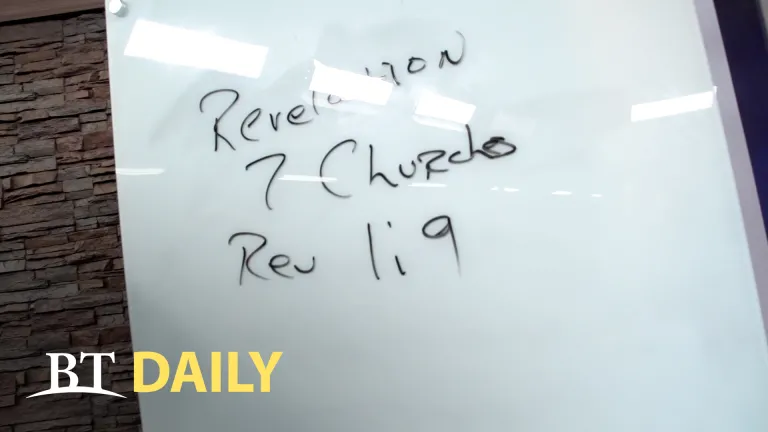 Revelation
7 Churches
Rev 1:9
BT DAILY